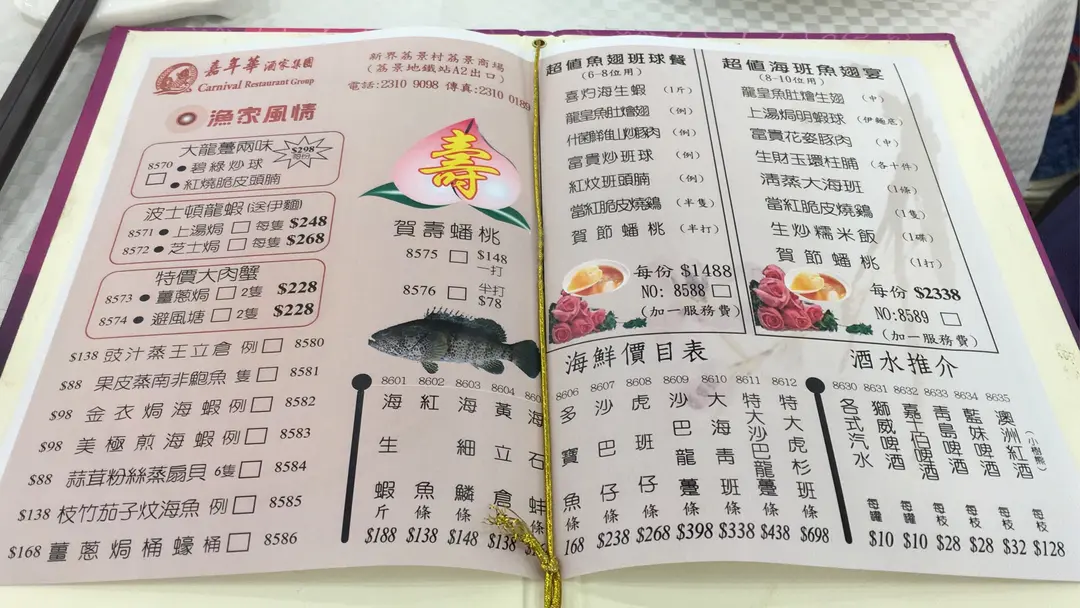 嘉年華酒家集團
Carnival Restaurant Group
新界荔景村荔景商場
(荔景地鐵站A2出口)
電話:2310 9098 傳真:2310 0189
漁家風情
大龍躉兩味
$298
每份
8570 ● 碧綠炒球
● 紅燒脆皮頭腩
波士頓龍蝦(送伊麵)
8571 ● 上湯焗 每隻 $248
8572 ● 芝士焗 每隻 $268
特價大肉蟹
8573 ● 薑蔥焗 2隻 $228
8574 ● 避風塘 2隻 $228
$138 豉汁蒸王立倉 例 8580
$88 果皮蒸南非鮑魚 隻 8581
$98 金衣焗海蝦 例 8582
$98 美極煎海蝦 例 8583
$88 蒜茸粉絲蒸扇貝 6隻 8584
$138 枝竹茄子炆海魚 例 8585
$168 薑蔥焗桶蠔 桶 8586
壽
賀壽蟠桃
8575 $148 一打
8576 半打 $78
超值魚翅班球餐
(6-8位用)
喜灼海生蝦 (1斤)
龍皇魚肚燴翅 (例)
什菌鮮淮山炒豚肉 (例)
富貴炒班球 (例)
紅炆班頭腩 (例)
當紅脆皮燒鷄 (半隻)
賀節蟠桃 (半打)
每份 $1488
NO: 8588
(加一服務費)
超值海班魚翅宴
(8-10位用)
龍皇魚肚燴生翅 (中)
上湯焗明蝦球 (伊麵底)
富貴花姿豚肉 (中)
生財玉環柱脯 (各十件)
清蒸大海班 (1條)
當紅脆皮燒鷄 (1隻)
生炒糯米飯 (1碟)
賀節蟠桃 (1打)
每份 $2338
NO:8589
(加一服務費)
海鮮價目表
8601 海生蝦 斤 $188
8602 紅魚 條 $138
8603 海細鱗 條 $148
8604 黃立倉 條 $138
海石蚌 條
8606 多寶魚 條 168
8607 沙巴仔 條 $238
8608 虎班仔 條 $268
8609 沙巴龍躉 條 $398
8610 大海青班 條 $338
8611 特大沙巴龍躉 條 $438
8612 特大虎杉班 條 $698
酒水推介
8630 各式汽水 每罐 $10
8631 獅威啤酒 每罐 $10
8632 嘉士伯啤酒 每枝 $28
8633 青島啤酒 每枝 $28
8634 藍妹啤酒 每枝 $32
8635 澳洲紅酒 (小樹熊) 每枝 $128